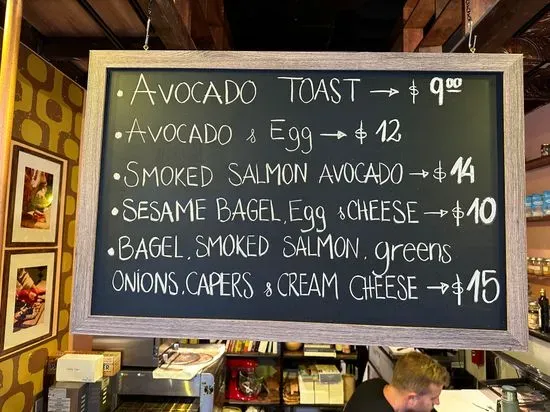 • AVOCADO TOAST → $ 9.00
• AVOCADO & Egg → $ 12
• SMOKED SALMON AVOCADO → $ 14
• SESAME BAGEL, Egg & CHEESE → $ 10
• BAGEL, SMOKED SALMON, greens
ONIONS, CAPERS & CREAM CHEESE → $ 15